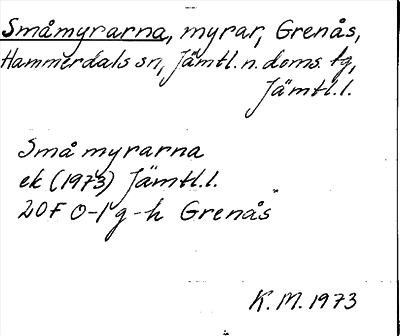 Småmyrarna, myrar, Grenås,
Hammerdals sn, Jämtl. n. doms. tg,
Jämtl. l.
Småmyrarna
ek (1973) Jämtl. l.
20F 0-1 g-h Grenås
K. M. 1973